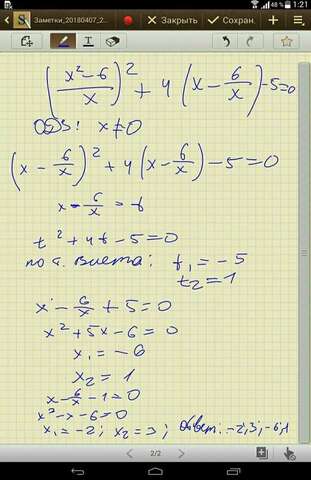 48 % 1:21
Заметки_20180407_2...
Закрыть
Сохран.
((x²-6)/x)² + 4(x - 6/x) - 5 = 0
ОДЗ: x ≠ 0
(x - 6/x)² + 4(x - 6/x) - 5 = 0
x - 6/x = t
t² + 4t - 5 = 0
по т. Виета: t₁ = -5
t₂ = 1
x - 6/x + 5 = 0
x² + 5x - 6 = 0
x₁ = -6
x₂ = 1
x - 6/x - 1 = 0
x² - x - 6 = 0
x₁ = -2; x₂ = 3; Ответ: -2; 3; -6; 1
2/2